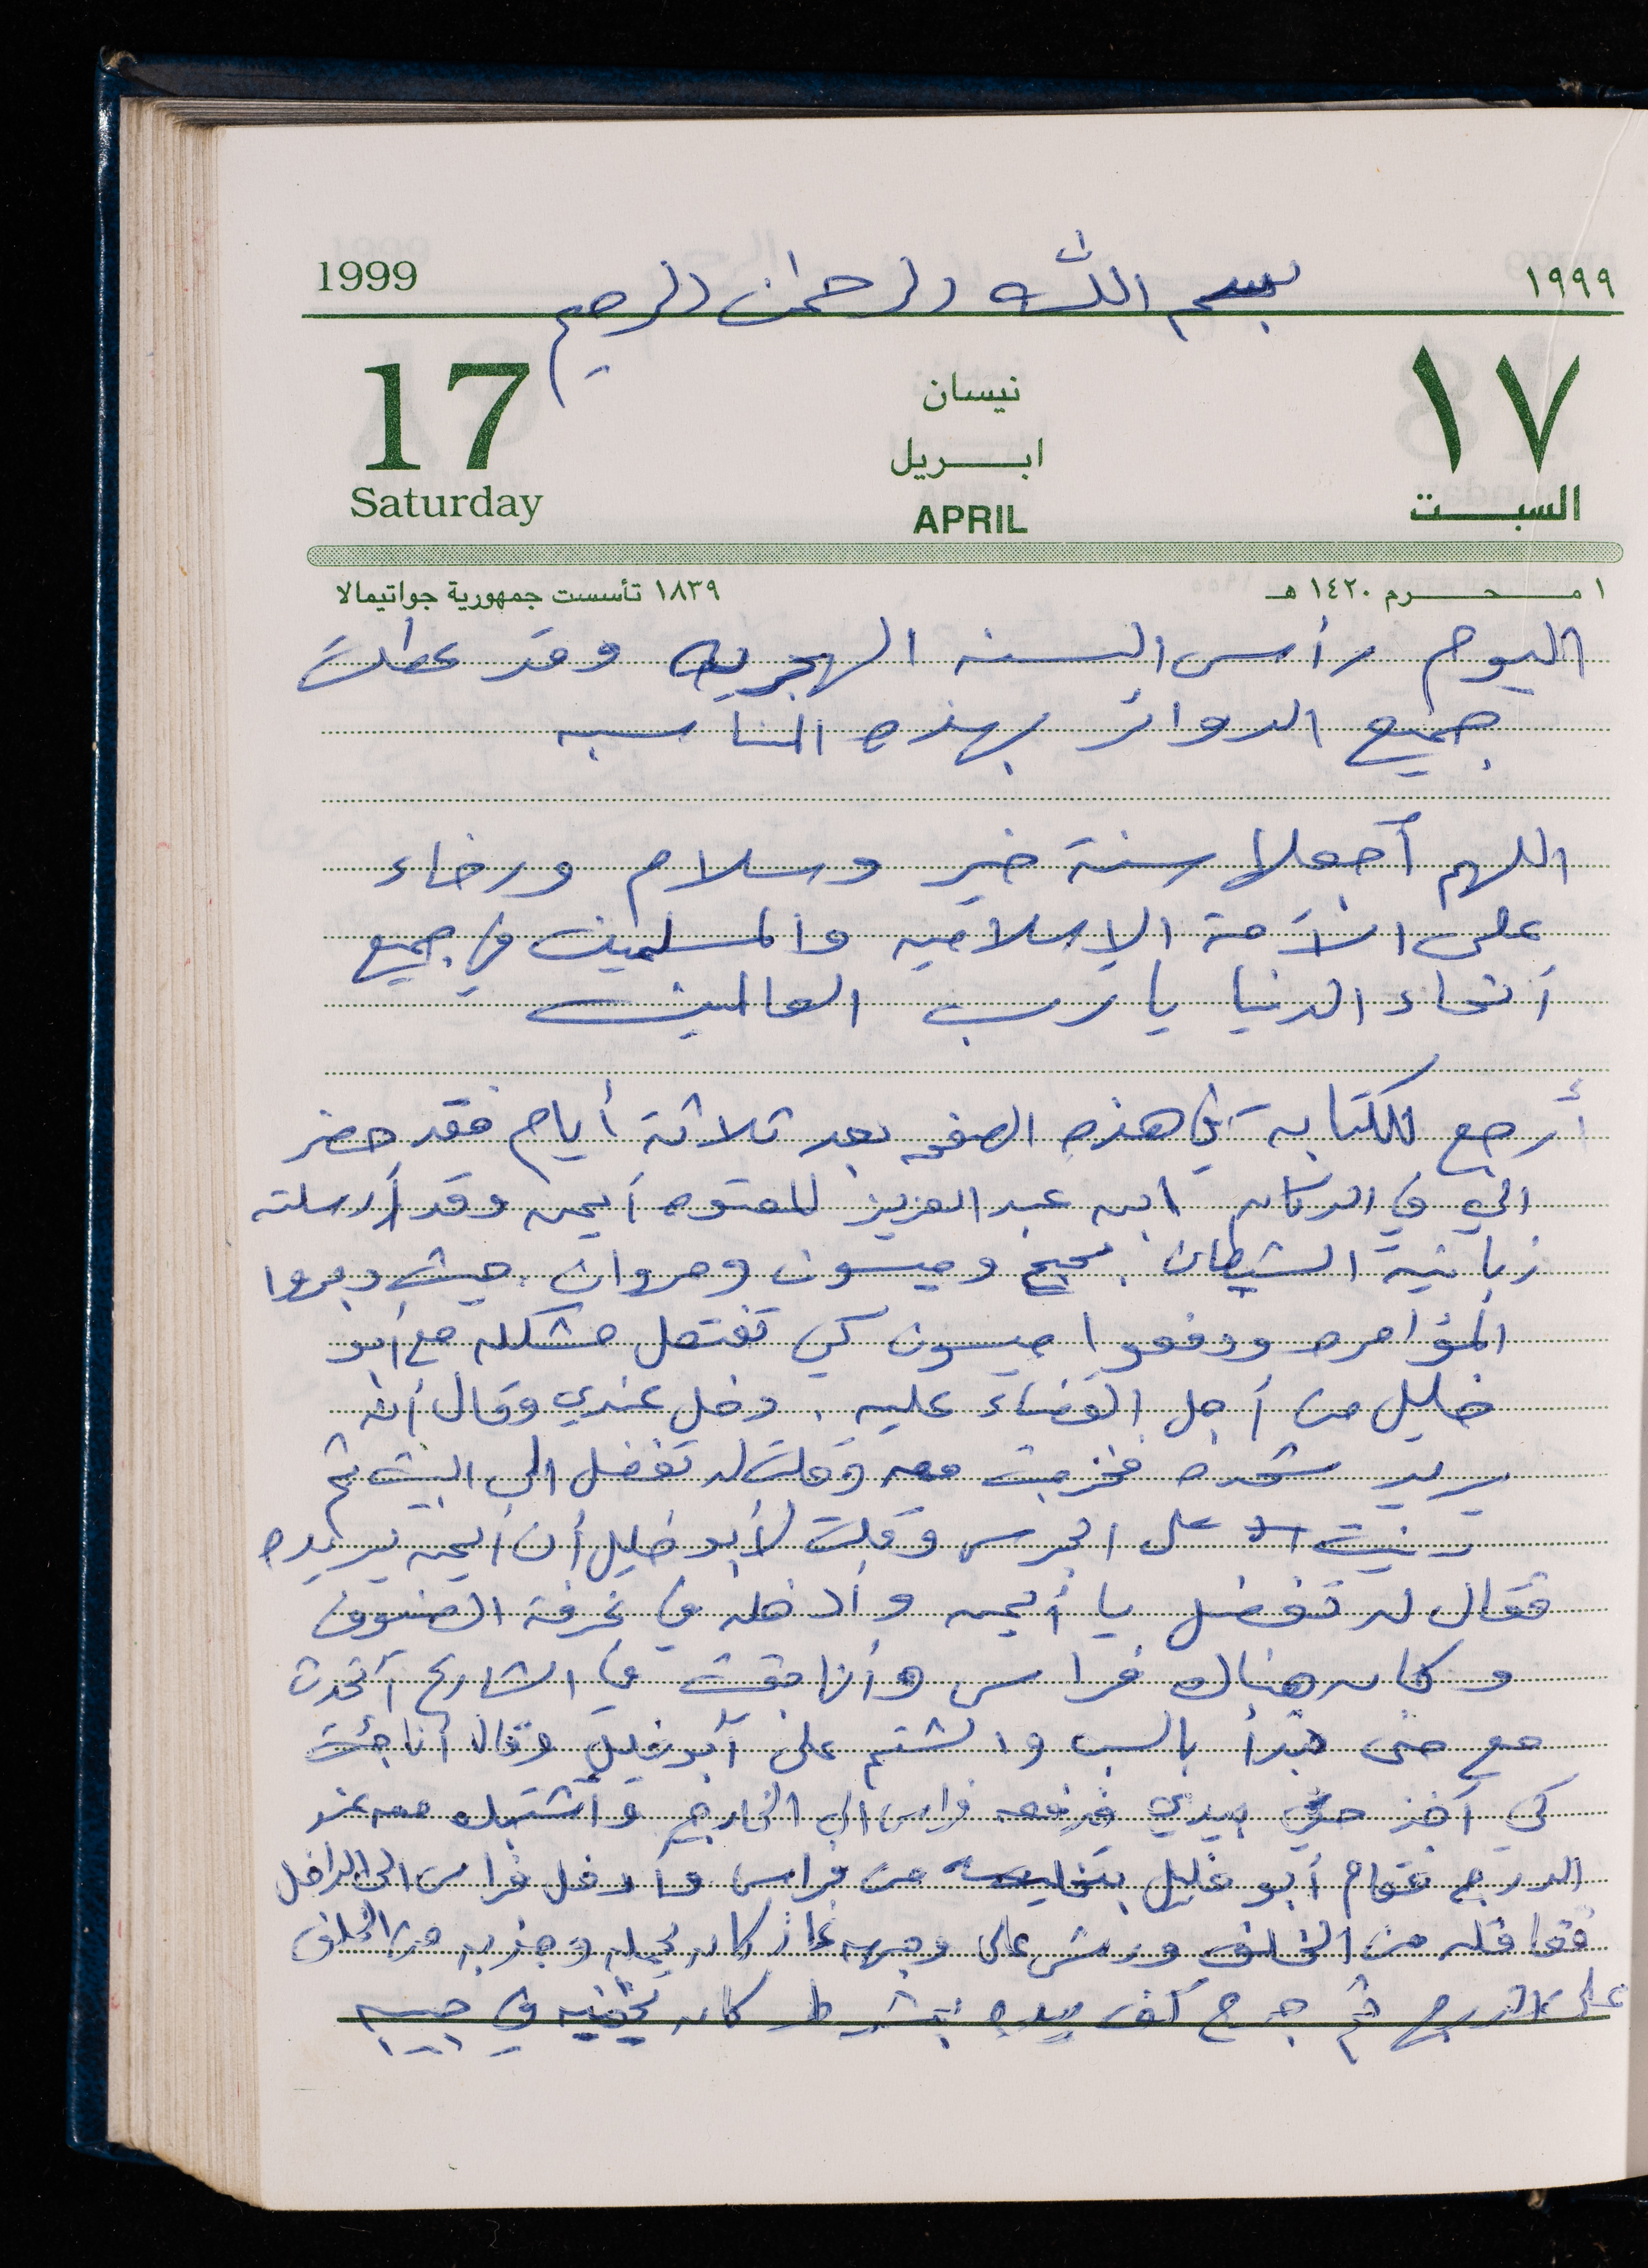 1999 بسم الله الرحمن الرحيم ١٩٩٩
17 نيسان ١٧
ابريل
Saturday APRIL السبت
١ محرم ١٤٢٠ هـ ١٨٣٩ تأسست جمهورية جواتيمالا
اليوم رأس السنه الهجريه وقد عطلت
جميع الدوائر بهذه المناسبه
اللهم أجعلها سنة خير وسلام ورخاء
على الأمة الإسلاميه والمسلمين في جميع
أنحاء الدنيا يا رب العالمين
أرجع للكتابة في هذه الصفحه بعد ثلاثة أيام فقد حضر
الي في الدكان ابن عبد العزيز المعتوه أيمن وقد أرسلته
زبانية الشيطان وميسون ومروان . حيث دبروا
المؤامره ودفعوا ميسون كي تفتعل مشكله مع أبو
خليل من أجل القضاء عليه . دخل عندي وقال أنه
يريد فخرجت معه وقلت له تفضل الى البيت ثم
رنيت على الجرس وقلت لأبو خليل أن أيمن يريده
فقال له تفضل يا أيمن وأدخله في غرفة الضيوف
وكان هناك فراس وأنا بقيت في الشارع أتحدث
مع حتى بدأ بالسب والشتم على أبو خليل وقال أنا جئت
كي آخذ حقي بيدي فدفعه فراس الى الخارج وأشتبك معه عند
الدرج فقام أبو خليل بتخليصه من فراس وأدخل فراس الى الداخل
فغافله من الخلف ورش على وجهه غاز كان يحمله وجذبه من الخلف
على الدرج ثم جرح كف يده بمشرط كان يخفيه في جيبه